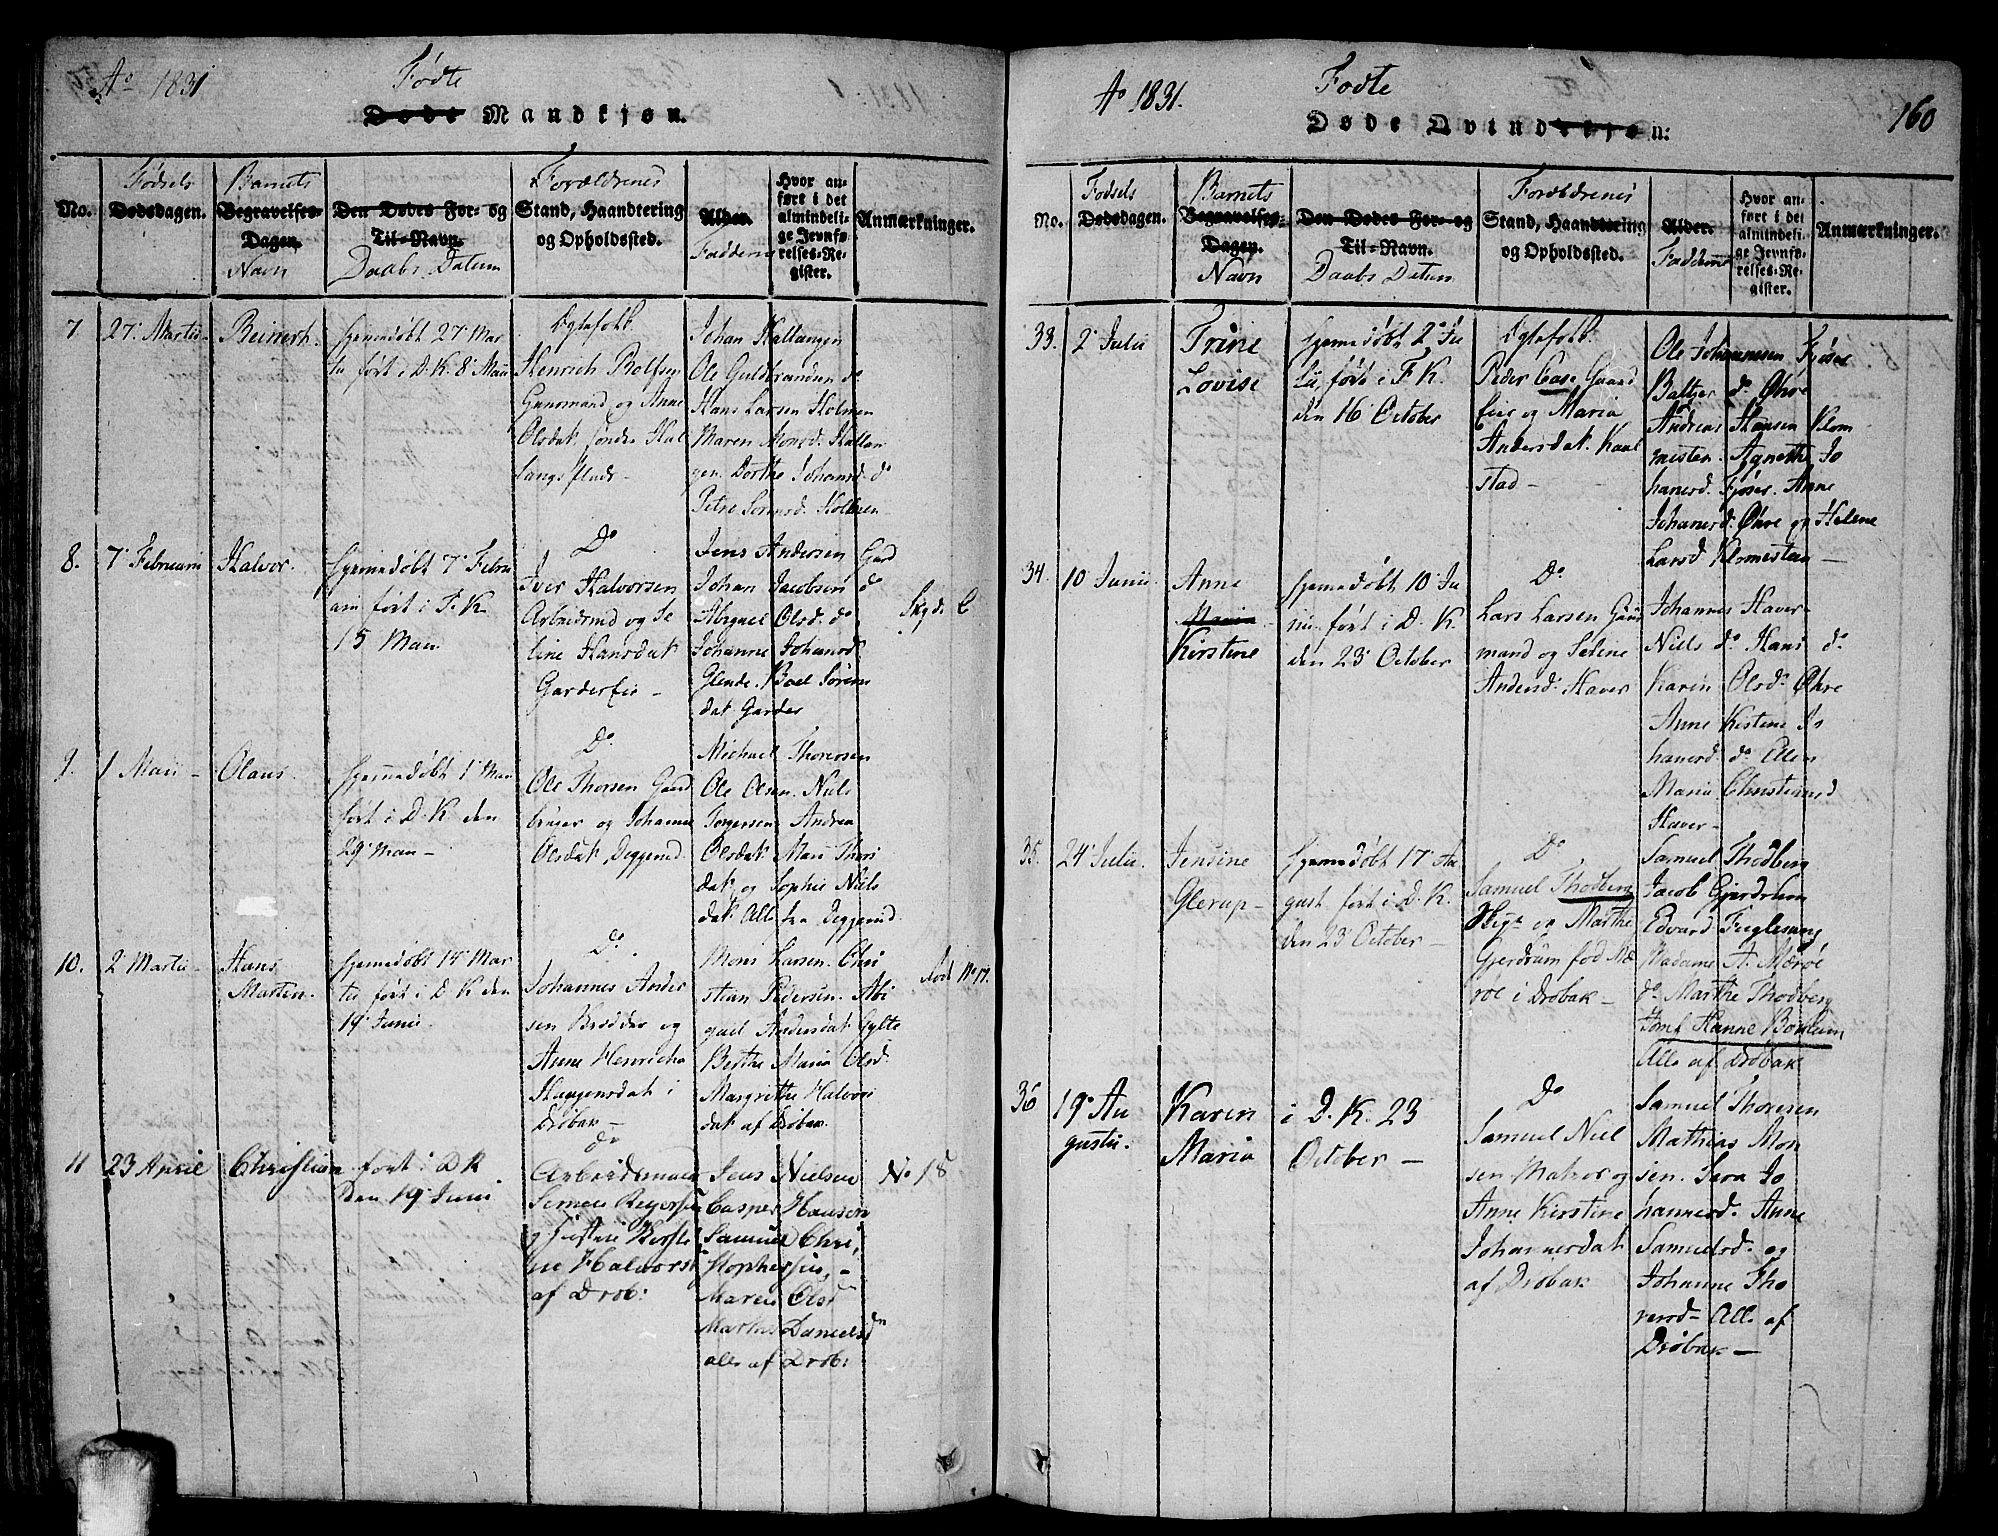 Ao 1831
Fødte
Døde Mandkjøn.
No.
Fødsels
Dødsdagen.
Barnets
Begravelses-
Dagen.
Navn
Den Dødes For- og
Til-Navn.
Daabs Datum
Forældrenes
Stand, Haandtering
og Opholdssted.
Alder.
Faddere
Hvor an-
ført i det
almindeli-
ge Jevnfø-
relses-Re-
gister.
Anmærkninger.
7
27. Martii
Beinert.
hjemedøbt 27 Mar
tii ført i D. K. 8 Maii
Ægtefolk.
Henrich Rolfsen
Gaasmand og Anne
Olsdat. søndre Hal
langspladz
Johan Hallangen
Ole Guldbrandsen do
Hans Larsen Holmen
Maren Monsd. Hallan
gen. Dorthe Johansd. do
Petre Larsd. Holmen
8.
7 Februarii
Halvor.
hjemedøbt 7 Febru
arii ført i F. K.
15 Maii
Do
Iver Halvorsen
Arbeidsmd og Se
line Hansdat
Garderfie -
Jens Andersen Gard
Johan Jacobsen do
Abigael Olsd. do
Johanne Johansd.
Glende. Boel Søren
dat Garder
9.
1 Maii -
Olaus.
hjemmedøbt 1 Maii
ført i D. K den
29 Maii -
Do
Ole Thorsen Gaard
bruger og Johanne
Olsdat. Deggerud
Michael Thoresen
Ole Olsen. Niels
Torgersen Andrea
Olsdat Mari Thors
dat og Sophie Niels
dat Alle fra Deggerud
10.
2 Martii -
Hans
Marten.
hjemedøbt 15 Mar
tii ført i D. K den
19 Junii.
Do
Johannes Ander
sen Brodder og
Anne Henricha
Haagensdat i
Drøbak -
Mons Larsen. Chri
stian Pedersen. Abi
gael Andersdat Gylte
Berthe Maria Olsd.
Margrithe Halvors
dat af Drøbak.
11
23 April
Christian
ført i D K
den 19 Juni
do
Arbeidsmand
af Drøb:
Jens Nielsen
Casper Hansen
Samuel Chri,
stophersen,
Maren Olsd
Marthe Danielsd
alle af Drøb:
No 18
Ao 1831.
Fødte
Døde Qvindekjøn:
160
No.
Fødsels
Dødsdagen.
Barnets
Begravelses-
Dagen.
Navn
Den Dødes For- og
Til-Navn.
Daabs Datum
Forældrenes
Stand, Haandtering
og Opholdssted.
Alder.
Faddere
Hvor an-
ført i det
almindeli-
ge Jevnfø-
relses-Re-
gister.
Anmærkninger.
33.
2 Julii
Trine
Lovise
hjemedøbt 2 Ju
lii, ført i F. K.
den 16 October
Ægtefolk.
Peder Case Gaard
eier og Maria
Andersdat. Kaal
stad -
Ole Johannesen Fjøser
Baltzer do Øhre
Andreas Hansen Klom
mesten. Agnethe Jo
hanesd. Fjøser. Anne
Johanesd. Øhre og Helene
Larsd Klomesteen -
34.
10 Junii.
Anne
Maria
Kirstine
hjemedøbt 10 Ju
nii. ført i D. K.
den 23 October
Do
Lars Larsen Gaas
mand og Seline
Andersd. Haver
Johannes Haver-
Niels do Hans do
Karen Olsd. Øhre
Anne Kirstine Jo
hanesd do Ellen
Maria Christiansd
Haver -
35.
24 Julii.
Jensine
Glerup -
hjemedøbt 17 Au
gust. ført i D. K.
den 23 October -
Do
Samuel Thodberg
og Marthe
Gjerdrum fød Mæ
røe i Drøbak -
Samuel Thodberg
Jacob Gjerdrum
Edvard Fuglesang
Madame A. Mærøe
do Marthe Thodberg
Jomf Hanne Boklum
Alle af Drøbak
36
19 Au
gusti.
Karen
Maria
i D. K. 23
October -
Do
Samuel Niel
sen Matros og
Anne Kirstine
Johannesdat
af Drøbak
Samuel Thoresen
Mathias Mon
sen. Sara Jo
hannesd. Anne
Samuelsd. og
Johanne Tho
resd - Alle af
Drøbak -